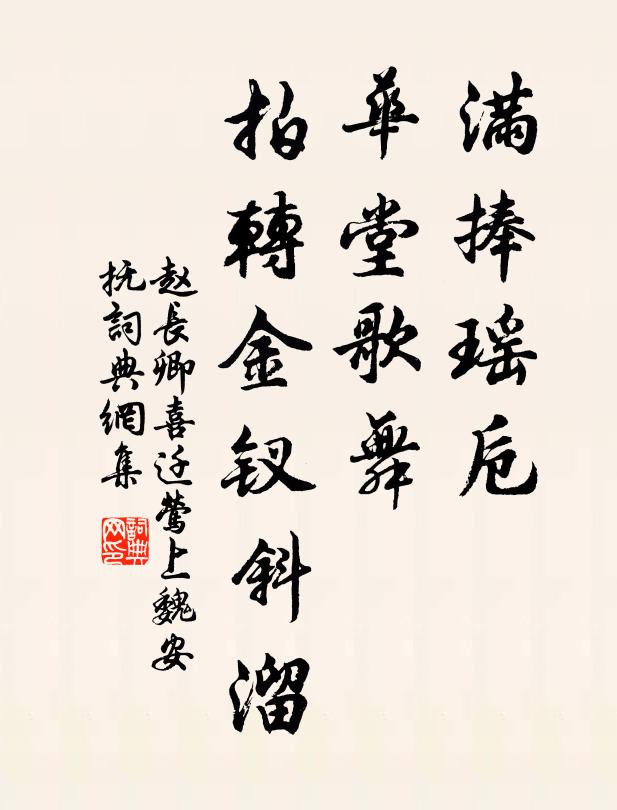 满捧瑶卮
華堂歌舞
拍轉金钗斜溜
赵長卿喜迁鶯上魏安
抚詞典網集
詞典
网印